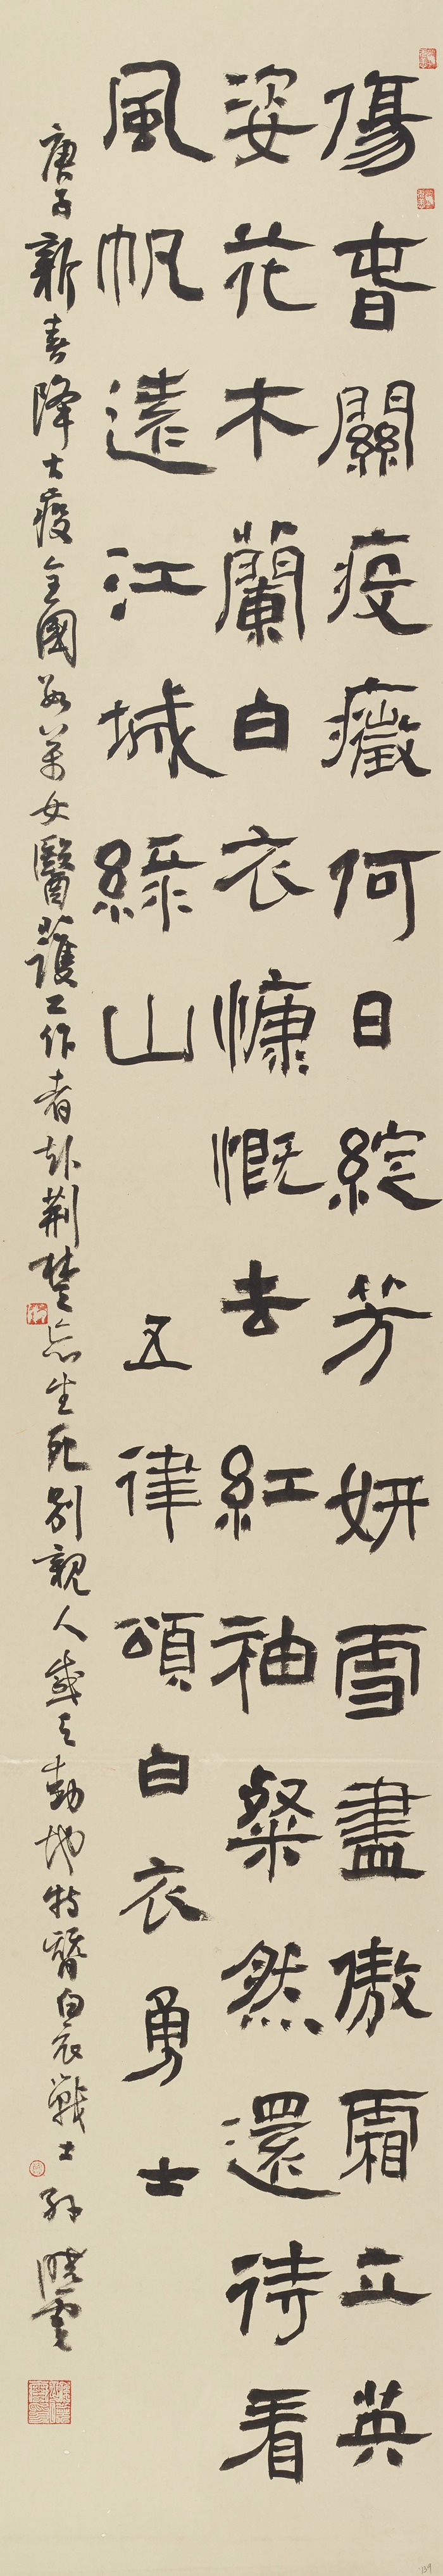 傷春關疫癥何日綻芳妍雪盡傲霜立英
姿花木蘭白衣慷慨去紅袖粲然還待看
風帆遠江城綠山 五律頌白衣勇士
庚子新春降大疫全國數萬女醫護工作者赴荆楚忘生死別親人感天動地特贊白衣戰士 孫曉雲